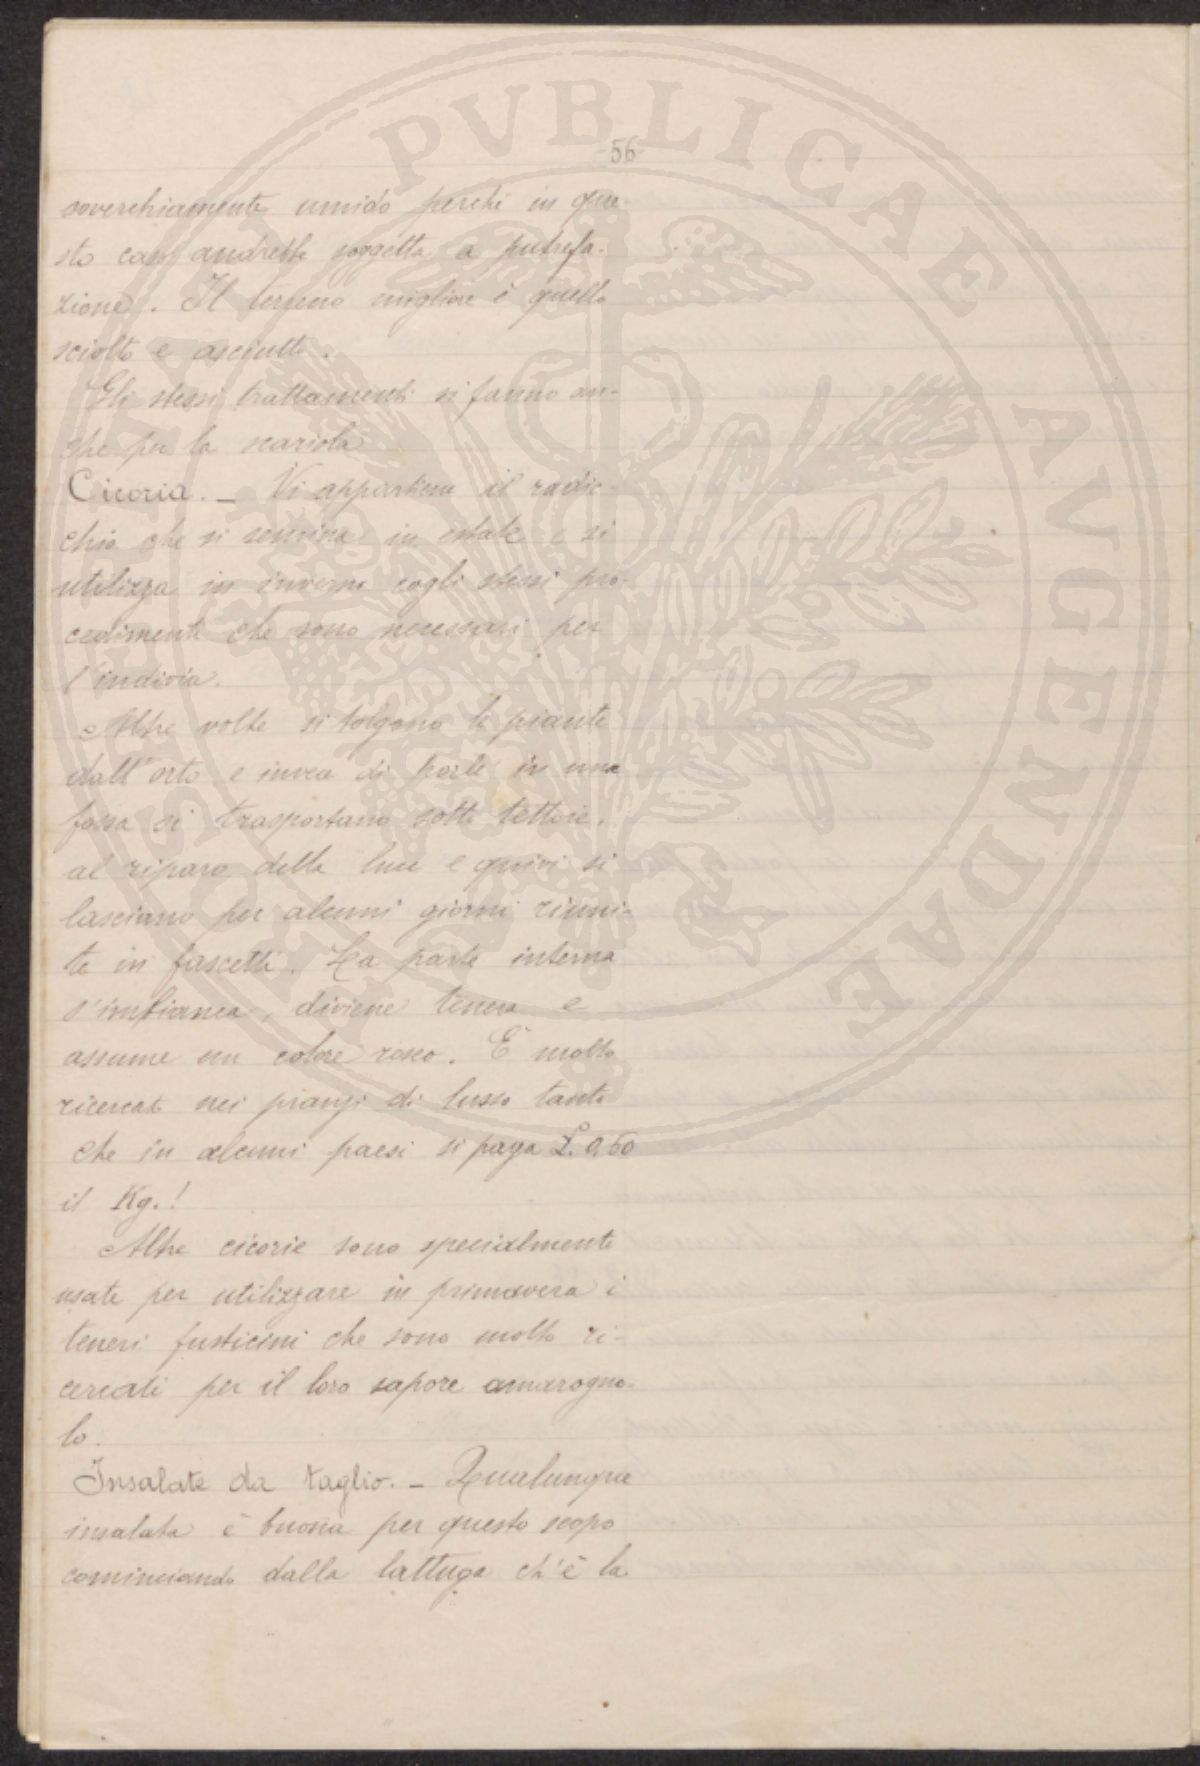 PVBLICAE AVGENDAE
-56-
soverchiamente umido perchè in que-
sto caso andrebbe soggetta a putrefa-
zione. Il terreno migliore è quello
sciolto e asciutto.
Gli stessi trattamenti si fanno an-
che per la scariola
Cicoria. _ Vi appartiene il radic-
chio che si semina in estate e si
utilizza in inverno cogli stessi pro-
cedimenti che sono necessari per
l'indivia.
Altre volte si tolgono le piante
dall'orto e invece di porle in una
fossa si trasportano sotto tettoie,
al riparo della luce e quivi si
lasciano per alcuni giorni riuni-
te in fascetti. La parte interna
s'imbianca, diviene tenera e
assume un colore roseo. È molto
ricercato nei pranzi di lusso tanto
che in alcuni paesi si paga L. 0,60
il Kg.!
Altre cicorie sono specialmente
usate per utilizzare in primavera i
teneri fusticini che sono molto ri-
cercati per il loro sapore amarogno-
lo.
Insalate da taglio. _ Qualunque
insalata è buona per questo scopo
cominciando dalla lattuga ch'è la